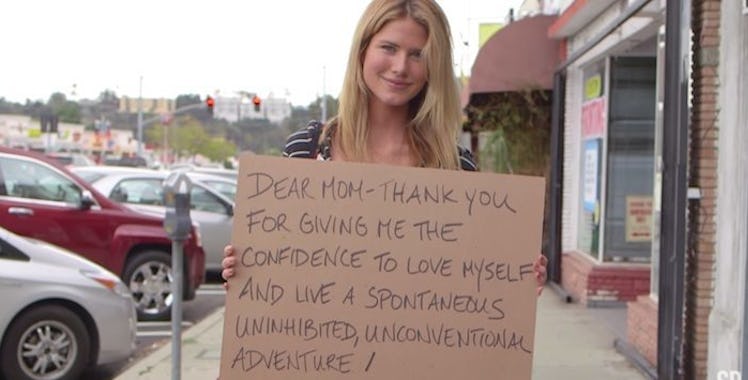 DEAR MOM - THANK YOU
FOR GIVING ME THE
CONFIDENCE TO LOVE MYSELF
AND LIVE A SPONTANEOUS
UNINHIBITED, UNCONVENTIONAL
ADVENTURE!